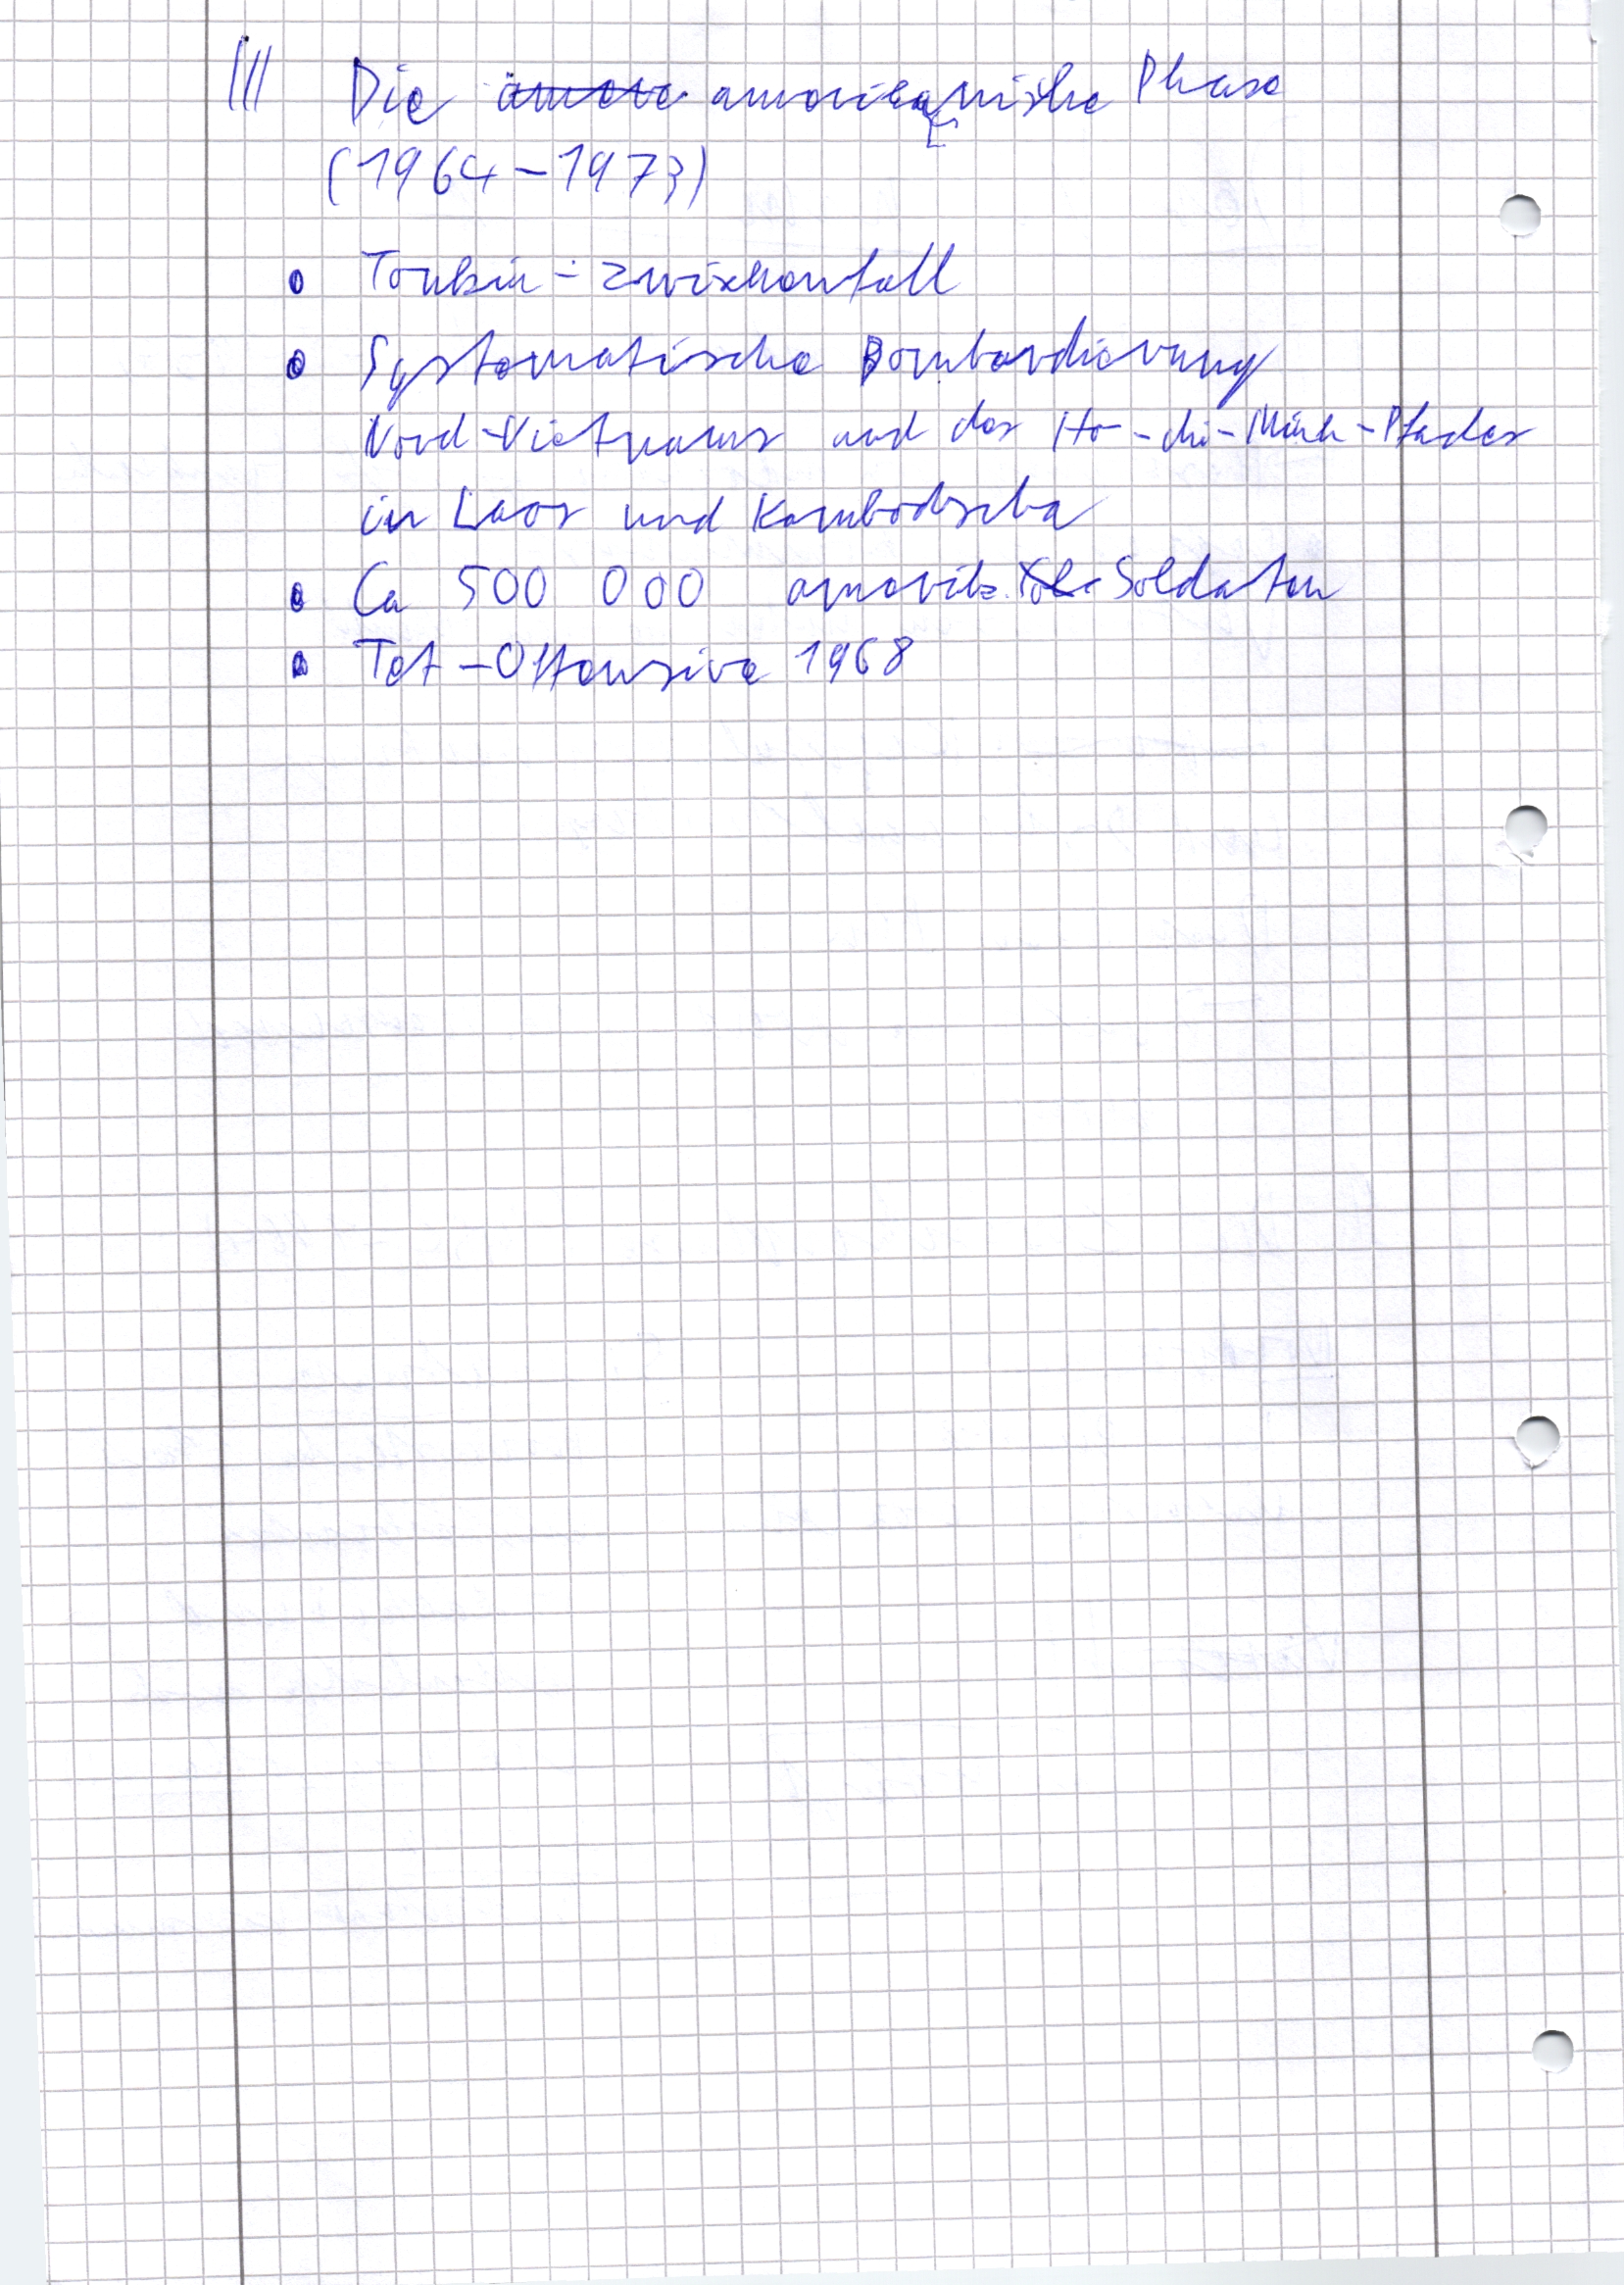 III Die amerikanische Phase
(1964-1973)
• Tonkin-Zwischenfall
• Systematische Bombardierung
Nord-Vietnams und des Ho-chi-Minh-Pfades
in Laos und Kambodscha
• Ca 500 000 amerik. Soldaten
• Tet-Offensive 1968